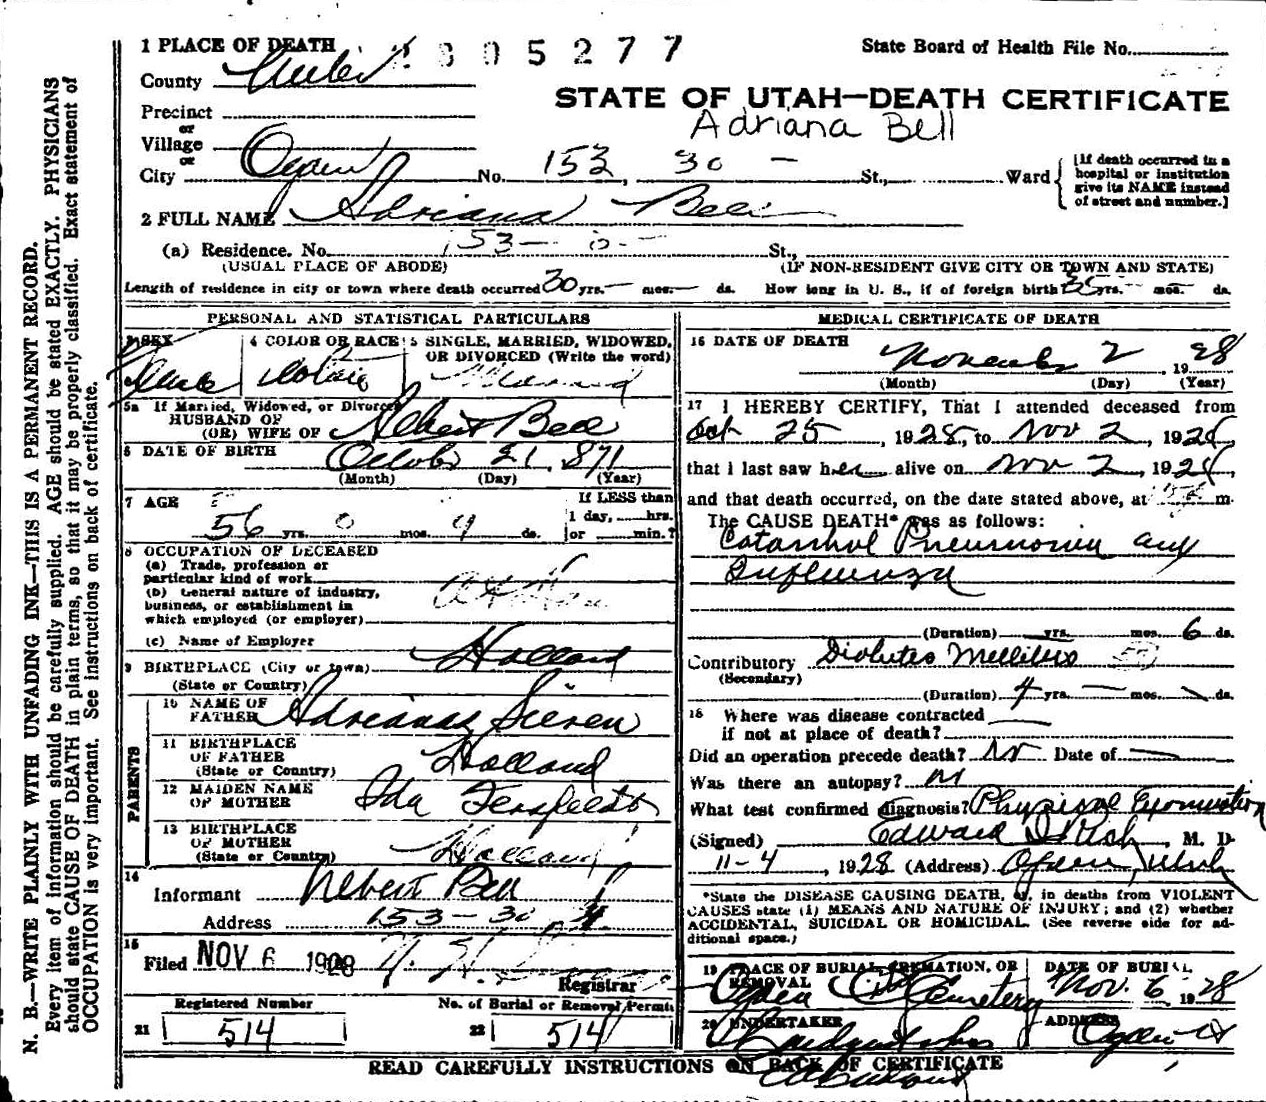 1 PLACE OF DEATH 2805277 State Board of Health File No.
County Weber
STATE OF UTAH—DEATH CERTIFICATE
Precinct
Adriana Bell
or
Village
or
City Ogden No. 153, 30 – St., Ward
[If death occurred in a
hospital or institution
give its NAME instead
of street and number.]
2 FULL NAME Adriana Bell
(a) Residence. No. 153– St.,
(USUAL PLACE OF ABODE) (IF NON-RESIDENT GIVE CITY OR TOWN AND STATE)
Length of residence in city or town where death occurred 30 yrs. — mos. — ds. How long in U. S., if of foreign birth yrs. — mos. — ds.
PERSONAL AND STATISTICAL PARTICULARS
3 SEX
4 COLOR OR RACE
5 SINGLE, MARRIED, WIDOWED,
OR DIVORCED (Write the word)
Female White Married
5a If Married, Widowed, or Divorced
HUSBAND OF
(OR) WIFE OF Albert Bell
6 DATE OF BIRTH October 21, 1871
(Month) (Day) (Year)
7 AGE
If LESS than
1 day, hrs.
or min.?
56 yrs. 0 mos. ds.
8 OCCUPATION OF DECEASED
(a) Trade, profession or
particular kind of work
(b) General nature of industry,
business, or establishment in
which employed (or employer)
At Home
(c) Name of Employer
9 BIRTHPLACE (City or town) Holland
(State or Country)
PARENTS
10 NAME OF
FATHER Adrianas
11 BIRTHPLACE
OF FATHER
(State or Country) Holland
12 MAIDEN NAME
OF MOTHER Ida
13 BIRTHPLACE
OF MOTHER
(State or Country) Holland
14
Informant Albert Bell
Address 153–30
15
Filed NOV 6 1928
Registrar
Registered Number
21 514
No. of Burial or Removal Permit
22 514
MEDICAL CERTIFICATE OF DEATH
16 DATE OF DEATH
November 2 1928
(Month) (Day) (Year)
17 I HEREBY CERTIFY, That I attended deceased from
Oct 25, 1928, to Nov 2, 1928,
that I last saw her alive on Nov 2, 1928,
and that death occurred, on the date stated above, at m.
The CAUSE DEATH* was as follows:
Catarrhal Pneumonia and
Influenza
(Duration) yrs. mos. 6 ds.
Contributory Diabetes Mellitus
(Secondary)
(Duration) 4 yrs. — mos. ds.
18 Where was disease contracted
if not at place of death?
Did an operation precede death? No Date of —
Was there an autopsy? No
What test confirmed diagnosis? Physical Examination
(Signed) Edward I Rich, M. D.
11-4 1928 (Address) Ogden, Utah
*State the DISEASE CAUSING DEATH, or, in deaths from VIOLENT
CAUSES state (1) MEANS AND NATURE OF INJURY; and (2) whether
ACCIDENTAL, SUICIDAL OR HOMICIDAL. (See reverse side for ad-
ditional space.)
19 PLACE OF BURIAL, CREMATION, OR
REMOVAL
Ogden City Cemetery
DATE OF BURIAL
Nov. 6 1928
20 UNDERTAKER
ADDRESS
Ogden Ut
READ CAREFULLY INSTRUCTIONS ON BACK OF CERTIFICATE
N. B.—WRITE PLAINLY WITH UNFADING INK—THIS IS A PERMANENT RECORD.
Every item of information should be carefully supplied. AGE should be stated EXACTLY. PHYSICIANS
should state CAUSE OF DEATH in plain terms, so that it may be properly classified. Exact statement of
OCCUPATION is very important. See instructions on back of certificate.